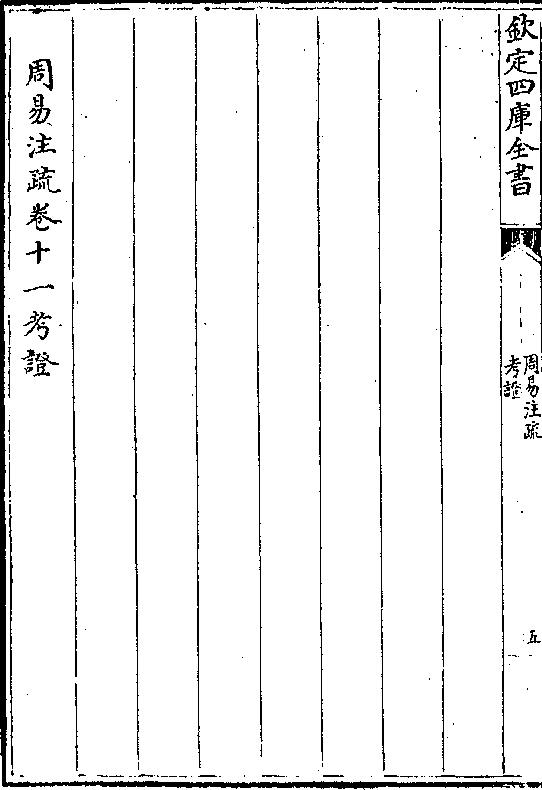 欽定四庫全書
周易注疏
考證
五
周易注疏卷十一考證